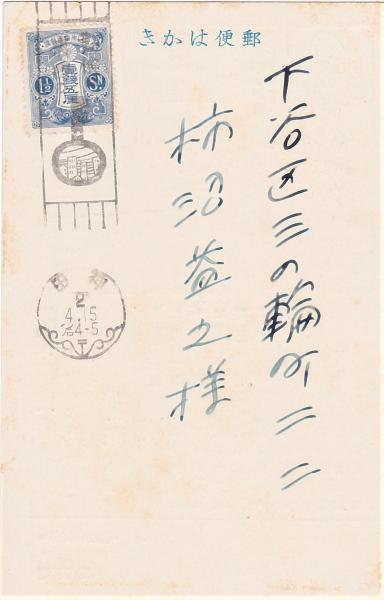 郵便はかき
下谷区三の輪町二二
柿沼益之様
壹錢五厘
1½ Sn
2
4.15
后4-5
〒